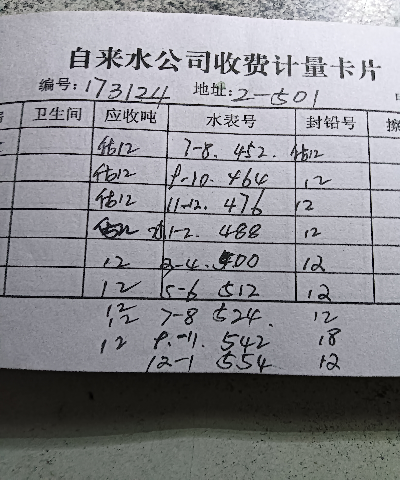 自来水公司收费计量卡片
编号: 173124 地址: 2-501
卫生间 应收吨 水表号 封铅号
估12 7-8. 452. 估12
估12 9-10. 464 12
估12 11-12. 476 12
估12 1-2. 488 12
12 3-4. 500 12
12 5-6 512 12
12
12 7-8 524. 12
12 9.-11. 542 18
12-1 554 12